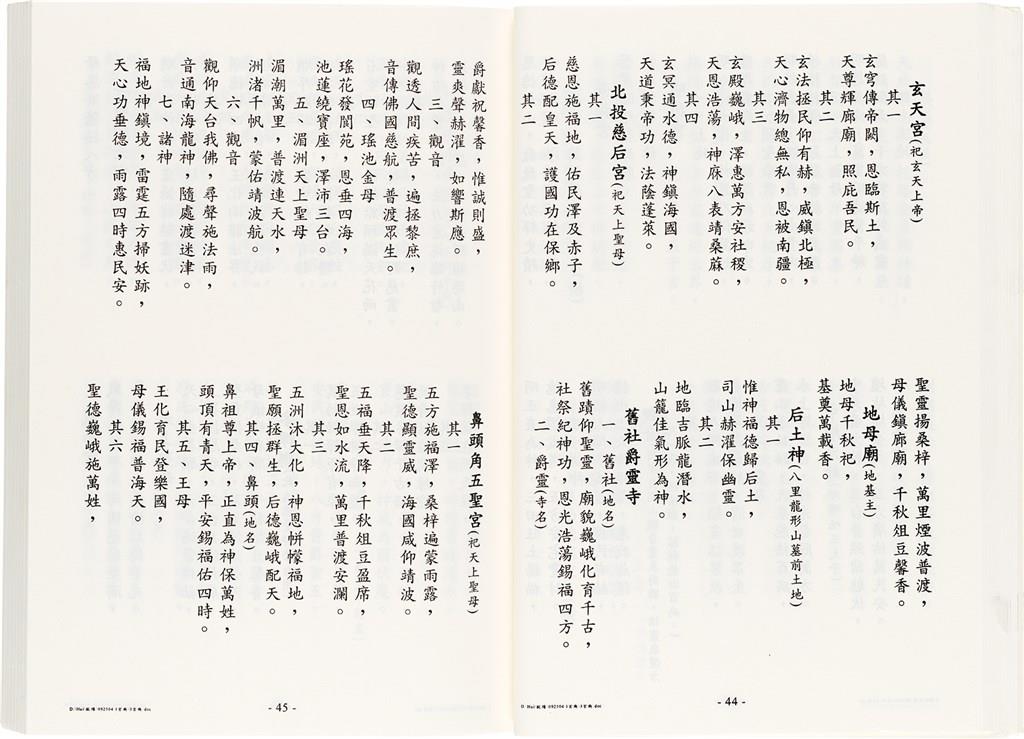 玄天宮(祀玄天上帝)
其一
玄穹傳帝闕，恩臨斯土，
天尊輝廊廟，照庇吾民。
其二
玄法拯民仰有赫，威鎮北極，
天心濟物總無私，恩被南疆。
其三
玄殿巍峨，澤惠萬方安社稷，
天恩浩蕩，神庥八表靖桑蔴。
其四
玄冥通水德，神鎮海國，
天道秉帝功，法蔭蓬萊。
北投慈后宮(祀天上聖母)
其一
慈恩施福地，佑民澤及赤子，
后德配皇天，護國功在保鄉。
其二
聖靈揚桑梓，萬里煙波普渡，
母儀鎮廊廟，千秋俎豆馨香。
地母廟(地基主)
地母千秋祀，
墓奠萬載香。
后土神(八里龍形山墓前土地)
其一
惟神福德歸后土，
司山赫濯保幽靈。
其二
地臨吉脈龍潛水，
山籠佳氣形為神。
舊社爵靈寺
一、舊社(地名)
舊蹟仰聖靈，廟貌巍峨化育千古，
社祭紀神功，恩光浩蕩錫福四方。
二、爵靈(寺名)
- 44 -
爵獻祝馨香，惟誠則盛，
靈爽聲赫濯，如響斯應。
三、觀音
觀透人間疾苦，遍拯黎庶，
音傳佛國慈航，普渡眾生。
四、瑤池金母
瑤花發閬苑，恩垂四海，
池蓮繞寶座，澤沛三台。
五、湄洲天上聖母
湄潮萬里，普渡連天水，
洲渚千帆，蒙佑靖波航。
六、觀音
觀仰天台我佛，尋聲施法雨，
音通南海龍神，隨處渡迷津。
七、諸神
福地神鎮境，雷霆五方掃妖跡，
天心功垂德，雨露四時惠民安。
鼻頭角五聖宮(祀天上聖母)
其一
五方施福澤，桑梓遍蒙雨露，
聖德顯靈威，海國咸仰靖波。
其二
五福垂天降，千秋俎豆盈席，
聖恩如水流，萬里普渡安瀾。
其三
五洲沐大化，神恩帡幪福地，
聖願拯群生，后德巍峨配天。
其四、鼻頭(地名)
鼻祖尊上帝，正直為神保萬姓，
頭頂有青天，平安錫福佑四時。
其五、王母
王化育民登樂國，
母儀錫福普海天。
其六
聖德巍峨施萬姓，
- 45 -